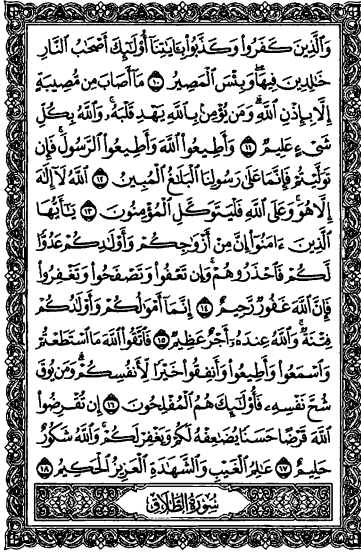 وَالَّذِينَ كَفَرُوا۟ وَكَذَّبُوا۟ بِـَٔايَـٰتِنَآ أُو۟لَـٰٓئِكَ أَصْحَـٰبُ النَّارِ
خَـٰلِدِينَ فِيهَا ۖ وَبِئْسَ الْمَصِيرُ ١٠ مَآ أَصَابَ مِن مُّصِيبَةٍ
إِلَّا بِإِذْنِ اللَّهِ ۗ وَمَن يُؤْمِنۢ بِاللَّهِ يَهْدِ قَلْبَهُۥ ۚ وَاللَّهُ بِكُلِّ
شَىْءٍ عَلِيمٌ ١١ وَأَطِيعُوا۟ اللَّهَ وَأَطِيعُوا۟ الرَّسُولَ ۚ فَإِن
تَوَلَّيْتُمْ فَإِنَّمَا عَلَىٰ رَسُولِنَا الْبَلَـٰغُ الْمُبِينُ ١٢ اللَّهُ لَآ إِلَـٰهَ
إِلَّا هُوَ ۚ وَعَلَى اللَّهِ فَلْيَتَوَكَّلِ الْمُؤْمِنُونَ ١٣ يَـٰٓأَيُّهَا
الَّذِينَ ءَامَنُوٓا۟ إِنَّ مِنْ أَزْوَٰجِكُمْ وَأَوْلَـٰدِكُمْ عَدُوًّا
لَّكُمْ فَاحْذَرُوهُمْ ۚ وَإِن تَعْفُوا۟ وَتَصْفَحُوا۟ وَتَغْفِرُوا۟
فَإِنَّ اللَّهَ غَفُورٌ رَّحِيمٌ ١٤ إِنَّمَآ أَمْوَٰلُكُمْ وَأَوْلَـٰدُكُمْ
فِتْنَةٌ ۚ وَاللَّهُ عِندَهُۥٓ أَجْرٌ عَظِيمٌ ١٥ فَاتَّقُوا۟ اللَّهَ مَا اسْتَطَعْتُمْ
وَاسْمَعُوا۟ وَأَطِيعُوا۟ وَأَنفِقُوا۟ خَيْرًا لِّأَنفُسِكُمْ ۗ وَمَن يُوقَ
شُحَّ نَفْسِهِۦ فَأُو۟لَـٰٓئِكَ هُمُ الْمُفْلِحُونَ ١٦ إِن تُقْرِضُوا۟
اللَّهَ قَرْضًا حَسَنًا يُضَـٰعِفْهُ لَكُمْ وَيَغْفِرْ لَكُمْ ۚ وَاللَّهُ شَكُورٌ
حَلِيمٌ ١٧ عَـٰلِمُ الْغَيْبِ وَالشَّهَـٰدَةِ الْعَزِيزُ الْحَكِيمُ ١٨
سُورَةُ الطَّلَاقِ